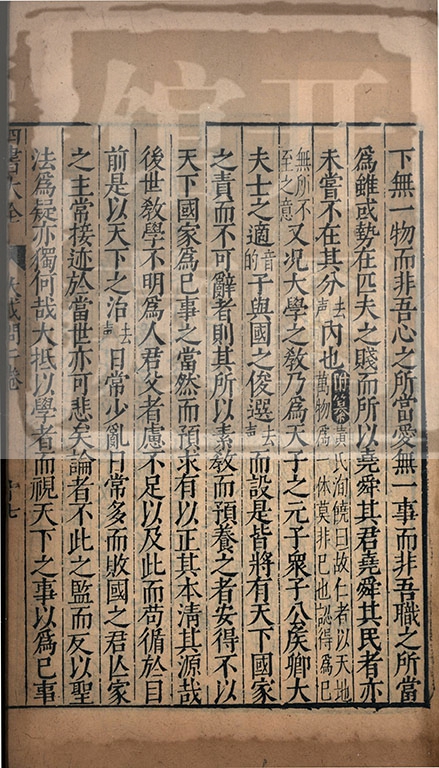 下無一物而非吾心之所當愛無一事而非吾職之所當
爲雖或勢在匹夫之賤而所以堯舜其君堯舜其民者亦
未嘗不在其分去聲內也附纂黃氏洵饒曰故仁者以天地萬物爲一体莫非已也認得爲已
無所不至之意又况大學之教乃爲天子之元子衆子公矦卿大
夫士之適音的子與國之俊選去聲而設是皆將有天下國家
之責而不可辭者則其所以素教而預養之者安得不以
天下國家爲已事之當然而預求有以正其本清其源哉
後世教學不明爲人君父者慮不足以及此而苟循於目
前是以天下之治去聲日常少亂日常多而敗國之君亾家
之主常接迹於當世亦可悲矣論者不此之監而反以聖
法爲疑亦獨何哉大抵以學者而視天下之事以爲已事
四書大全 大學或問一卷